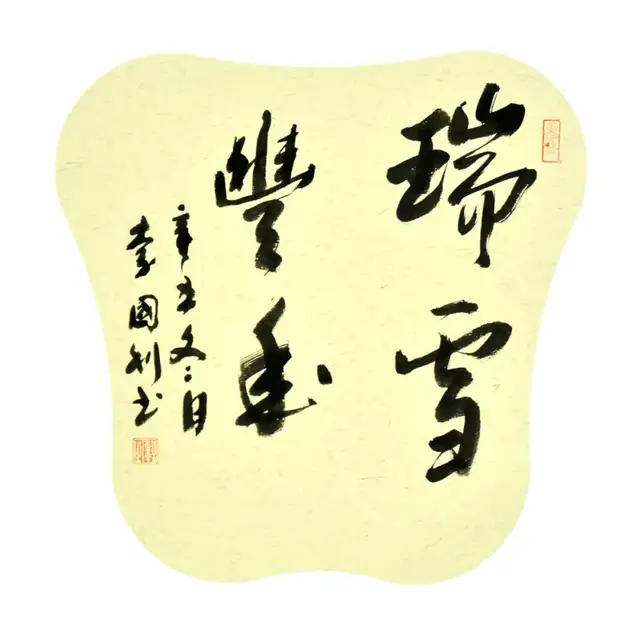 瑞雪
豐年
辛丑冬日
李國利书